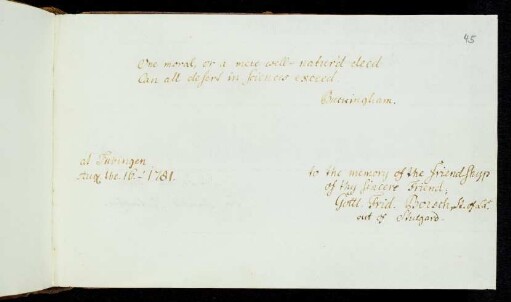 45
One moral, or a mere well-natur'd deed
Can all desert in sciences exceed.
Buckingham.
at Tubingen
Aug. the 16th 1781.
to the memory of the friendshyp
of thy sincere Friend,
Gottl. Frid.
out of Stutgard.